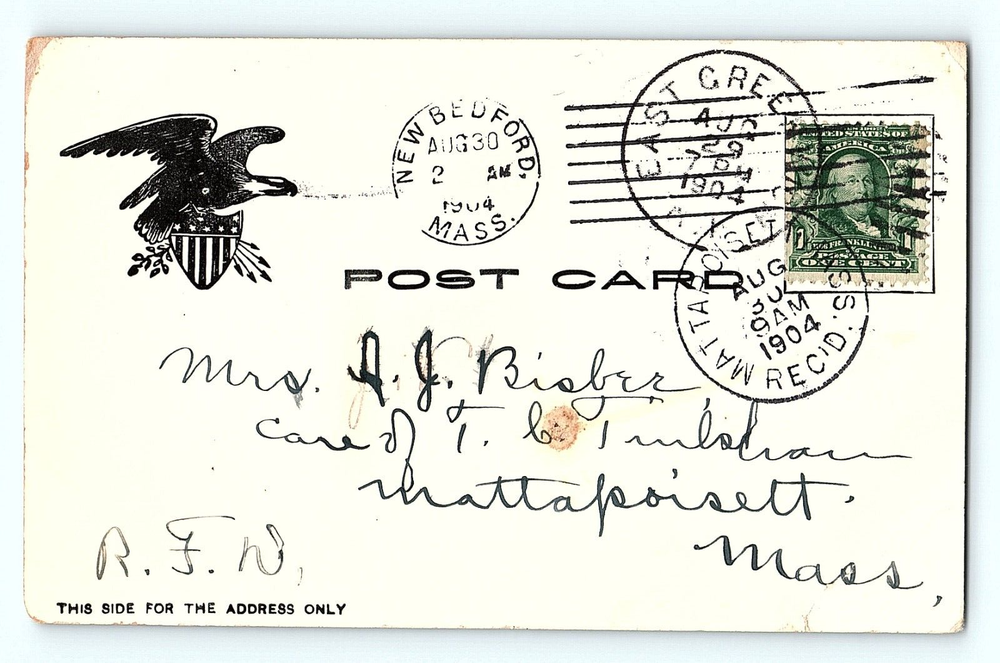 NEW BEDFORD,
AUG 30
2 AM
1904
MASS.
EAST GREE
AUG
29
7 PM
1904
UNITED STATES OF
AMERICA
FRANKLIN
ONE CENT
MATTAPOISETT MASS.
AUG
30
9AM
1904
REC'D.
POST CARD
Mrs. A. J. Bisbee,
Care of T. C.
Mattapoisett.
Mass,
R. F. W,
THIS SIDE FOR THE ADDRESS ONLY